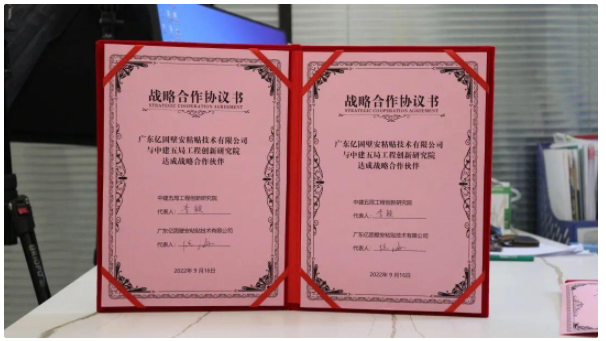 战略合作协议书
STRATEGIC COOPERATION AGREEMENT
广东亿固壁安粘贴技术有限公司
与中建五局工程创新研究院
达成战略合作伙伴
中建五局工程创新研究院
代表人：
广东亿固壁安粘贴技术有限公司
代表人：
2022年9月16日
战略合作协议书
STRATEGIC COOPERATION AGREEMENT
广东亿固壁安粘贴技术有限公司
与中建五局工程创新研究院
达成战略合作伙伴
中建五局工程创新研究院
代表人：
广东亿固壁安粘贴技术有限公司
代表人：
2022年9月10日